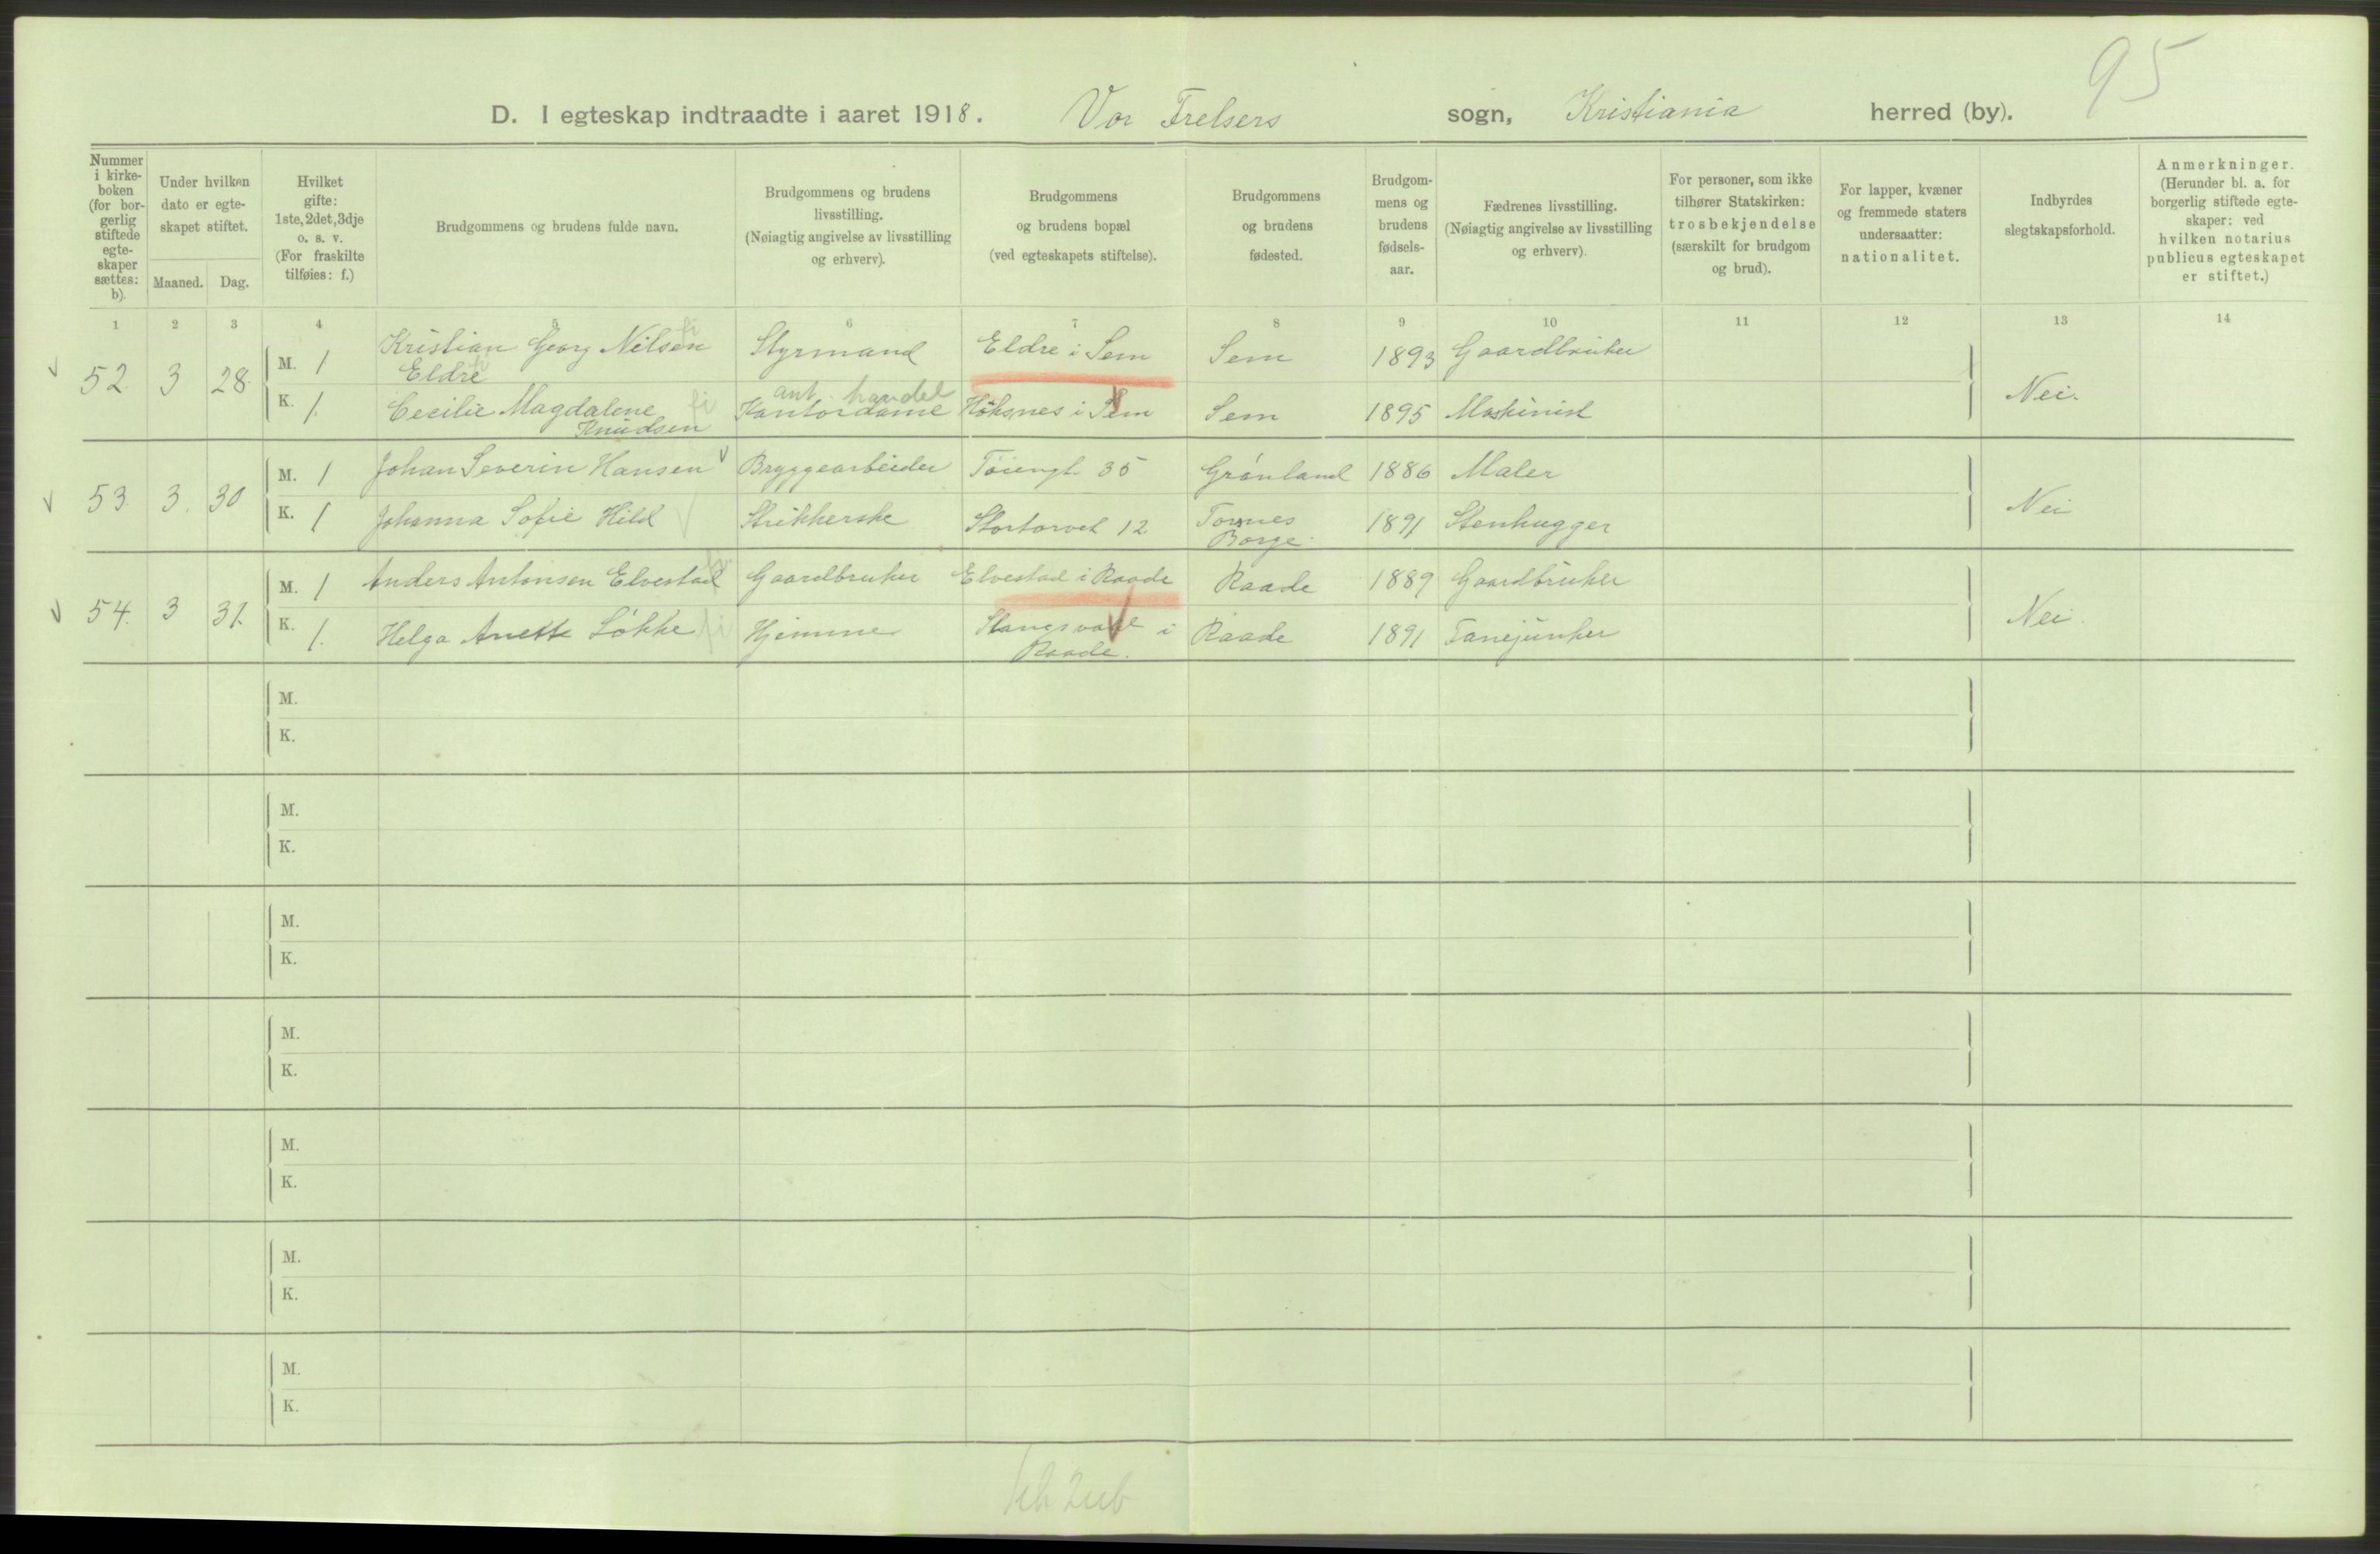 95
D. I egteskap indtraadte i aaret 1918. Vor Frelsers sogn, Kristiania herred (by).
Nummer i kirkeboken (for borgerlig stiftede egteskaper sættes: b).
Under hvilken dato er egteskapet stiftet.
Maaned. Dag.
Hvilket gifte: 1ste, 2det, 3dje o. s. v. (For fraskilte tilføies: f.)
Brudgommens og brudens fulde navn.
Brudgommens og brudens livsstilling. (Nøiagtig angivelse av livsstilling og erhverv).
Brudgommens og brudens bopæl (ved egteskapets stiftelse).
Brudgommens og brudens fødested.
Brudgommens og brudens fødselsaar.
Fædrenes livsstilling. (Nøiagtig angivelse av livsstilling og erhverv).
For personer, som ikke tilhører Statskirken: trosbekjendelse (særskilt for brudgom og brud).
For lapper, kvæner og fremmede staters undersaatter: nationalitet.
Indbyrdes slegtskapsforhold.
Anmerkninger. (Herunder bl. a. for borgerlig stiftede egteskaper: ved hvilken notarius publicus egteskapet er stiftet.)
1 2 3 4 5 6 7 8 9 10 11 12 13 14
52. 3 28. M. 1 Kristian Georg Nilsen Eldre Styrmand Eldre i Sem Sem 1893 Gaardbruker Nei.
K. 1. Cecilie Magdalene Knudsen Kontordame ant. handel i Sem Sem 1895 Maskinist
53. 3. 30 M. 1 Johan Severin Hansen Bryggearbeider Töiengt 35 Grönland 1886 Maler Nei
K. 1 Johanna Sofie Hild Strikkerske Stortorvet 12. Borge. 1891 Stenhugger
54. 3 31. M. 1 Anders Antonsen Elvestad Gaardbruker Elvestad i Raade Raade 1889 Gaardbruker Nei.
K. 1. Helga Anette Løkke Hjemme i Raade. Raade 1891 Fanejunker
M.
K.
M.
K.
M.
K.
M.
K.
M.
K.
M.
K.
M.
K.